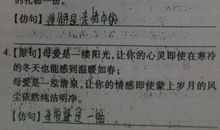 的礼物一份。
【仿句】母爱是亲情中的
4.【原句】母爱是一缕阳光,让你的心灵即使在寒冷
的冬天也能感到温暖如春;
母爱是一泓清泉,让你的情感即使蒙上岁月的风
尘依然纯洁明净。
【仿句】母爱是一